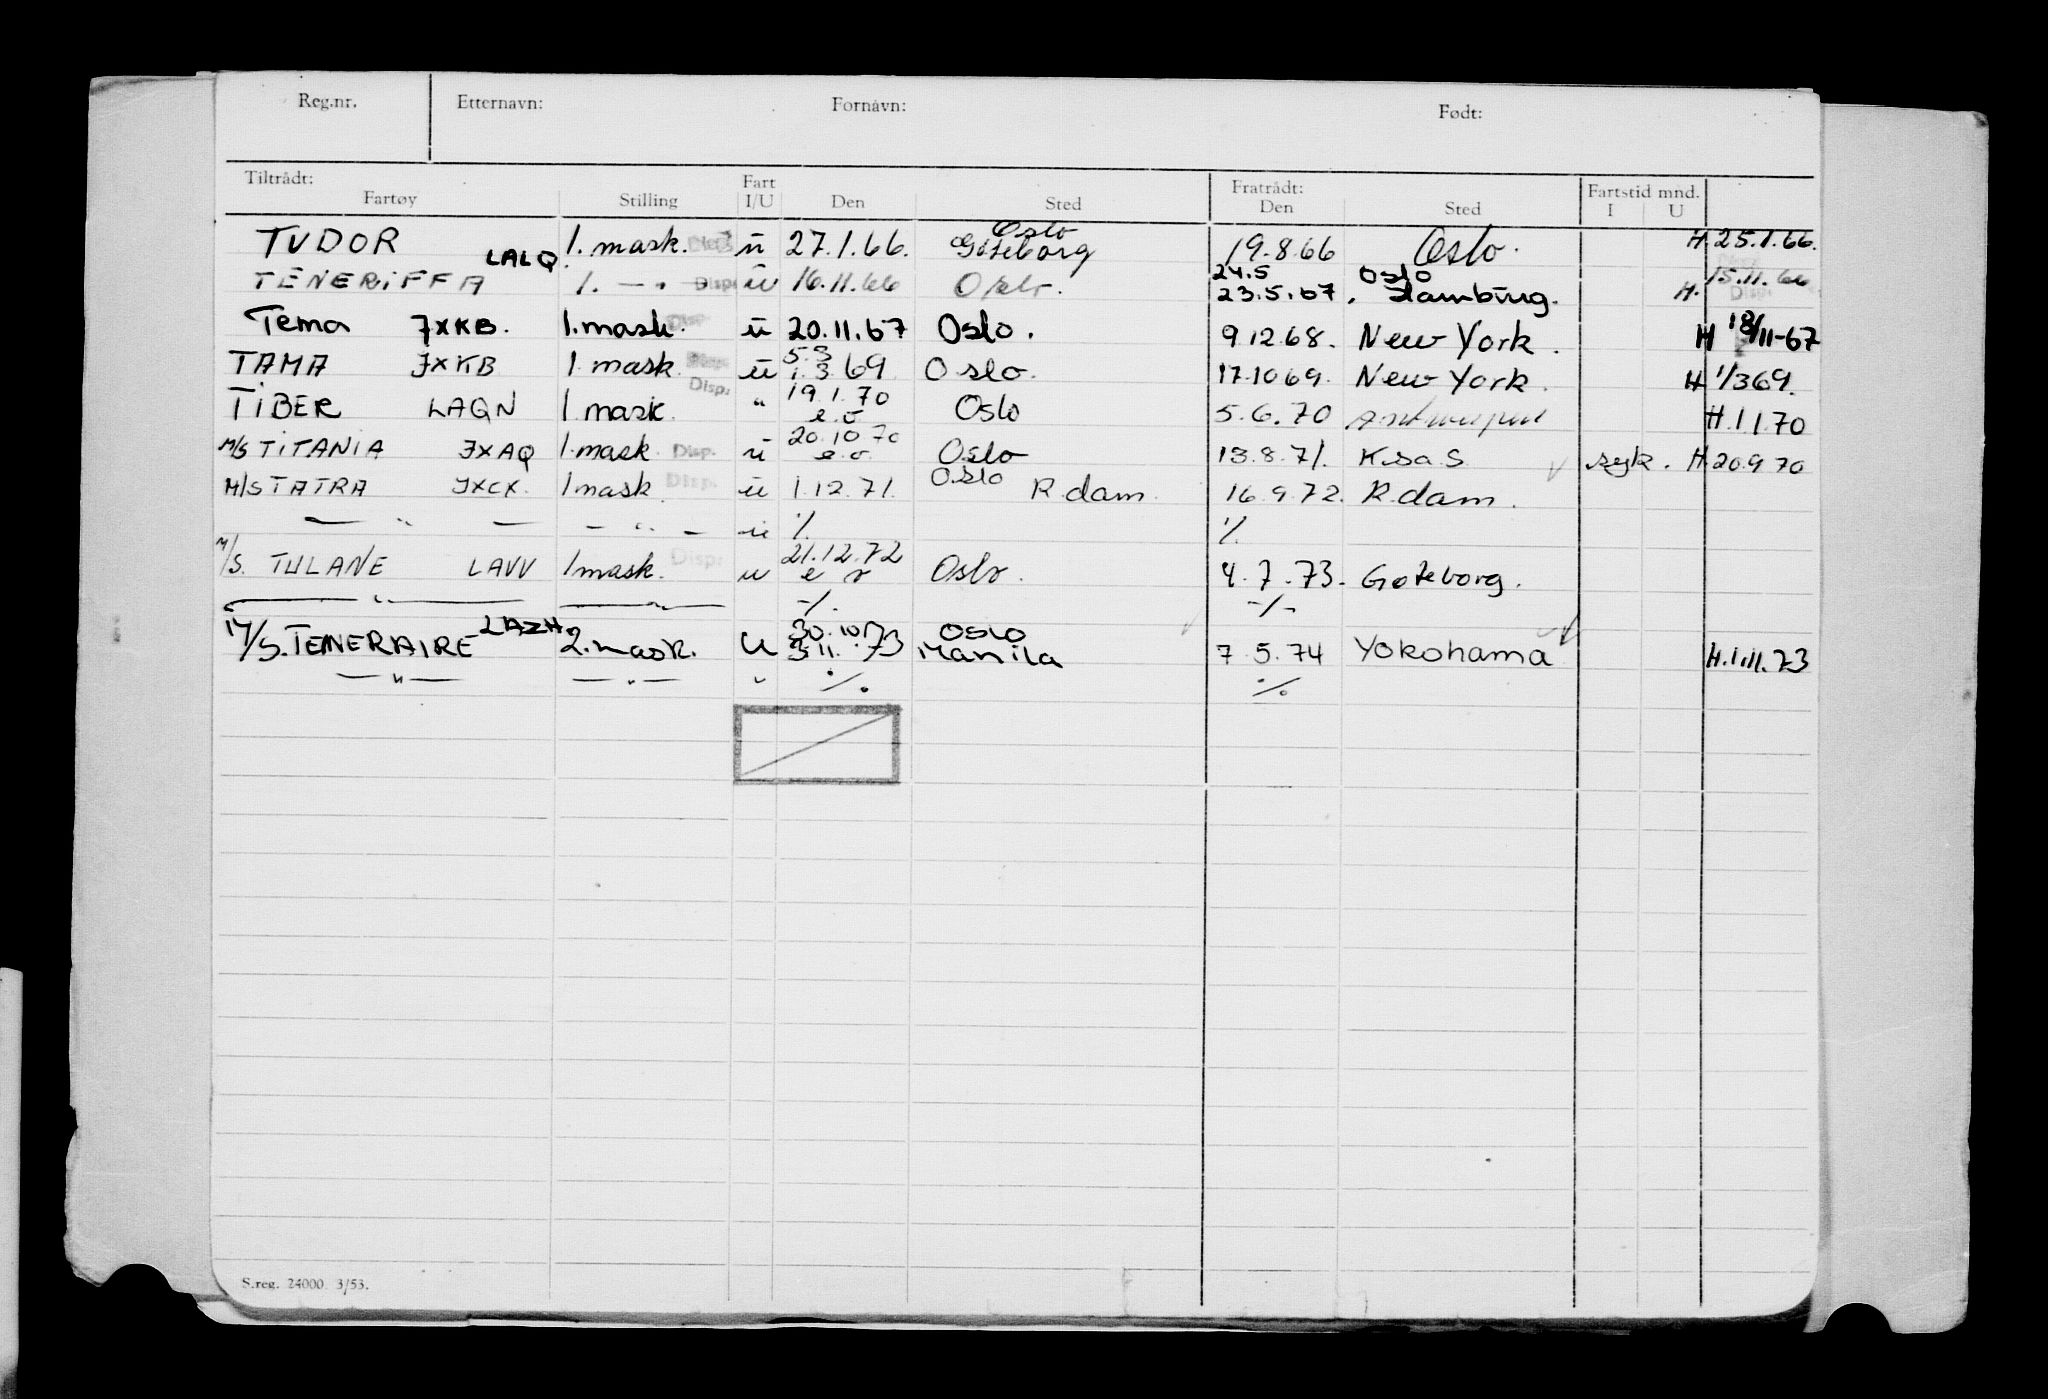 Reg.nr. Etternavn: Fornavn: Født:
Tiltrådt: Fart Fratrådt: Fartstid mnd.
Fartøy Stilling I/U Den Sted Den Sted I U
Oslo
TUDOR 1. mask. Disp ū 27.1.66. Göteborg 19.8.66 Oslo. H. 25.1.66.
LALQ 24.5 Oslo
TENERiFFA 1. — " — Disp ū 16.11.66 Oslo. 23.5.67. Hamburg. H. 15.11.66
Tema JXKB. 1. mask. Disp ū 20.11.67 Oslo. 9.12.68. New York. H 18/11-67
5.3
TAMA JXKB 1. mask. Disp. ū 1.3.69 Oslo. 17.10 69. New York. H 1/3 69.
Disp. 19.1.70
TiBER LAQN 1. mask. " e.o Oslo 5.6.70 Antwerpen H.1 1 70
20.10 70
M/S TiTANiA JXAQ 1. mask. Disp. ū e.o. Oslo 13.8.71. K.sa S syk. H. 20.9 70
Oslo
M/S TATRA JXCX. 1 mask. Disp. ū 1.12.71. R.dam. 16.9.72. R.dam.
— " — — " — ū ./. ./.
21.12.72
M/S. TULANE LAVV 1 mask. Disp: u e o Oslo. 4.7.73. Goteborg.
— " — — " — ./. ./.
LAZH 30.10 73 Oslo
M/S. TEMERAIRE 2. mask. U 3.11.73 Manila 7.5.74 Yokohama H.1.11.73
— " — — " — " ./. ./.
S.reg. 24000. 3/53.